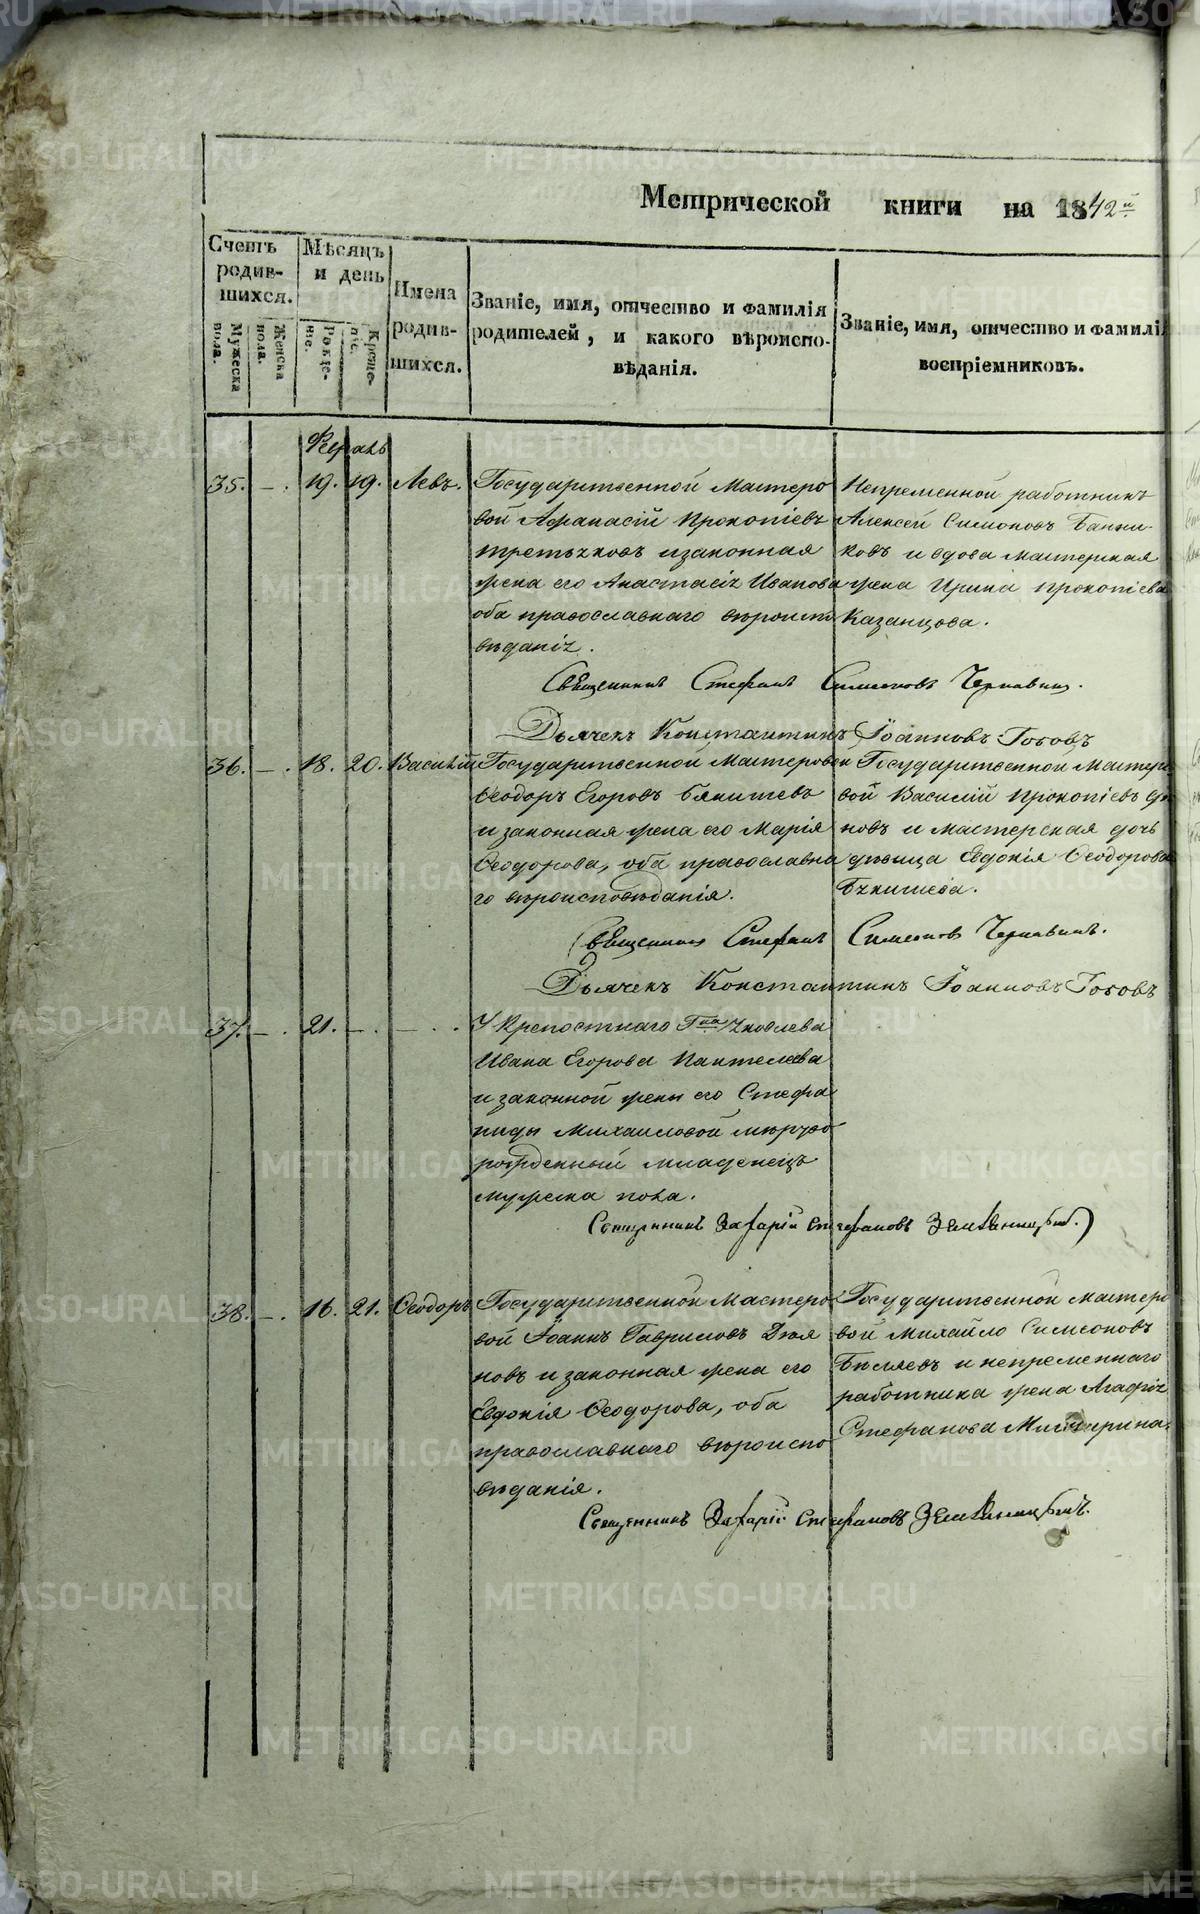 Метрической книги на 1842й
Счетъ родив-шихся.
Мужеска пола.
Женска пола.
Мѣсяцъ и день
Рожде-ніе.
Креще-ніе.
Имена родив-шихся.
Званіе, имя, отчество и фамилія
родителей, и какого вѣроиспо-
вѣданія.
Званіе, имя, отчество и фамилія
воспріемниковъ.
Февраль
35. —. 19. 19. Левъ.
Государственной Мастеро
вой Афанасій Прокопіевъ
Третьяковъ и законная
жена его Анастасія Иванова
оба православнаго вѣроиспо
вѣданія.
Непременной работникъ
Алексей Симоновъ
и вдова мастерская
жена Ирина Прокопіева
Казанцова.
Священникъ Стефанъ Симеоновъ Чернавинъ.
Дьячекъ Константинъ Іоанновъ Гобовъ
36. —. 18. 20. Василій
Государственной Мастеровой
Ѳеодоръ Егоровъ Бякишевъ
и законная жена его Марія
Ѳеодорова, оба православна
го вѣроисповѣданія.
Государственной Мастеро
вой Василій Прокопіевъ
новъ и мастерская дочь
дѣвица Евдокія Ѳеодорова
Бякишева.
Священникъ Стефанъ Симеоновъ Чернавинъ.
Дьячекъ Константинъ Іоанновъ Гобовъ
37. —. 21. —. —.
У Крепостнаго Гна Яковлева
Ивана Егорова Пантелеева
и законной жены его Стефа
ниды Михаиловой мертво
рожденный младенецъ
мужеска пола.
Священникъ Захарій Стефановъ Земляницынъ.
38. —. 16. 21. Ѳеодоръ
Государственной Мастеро
вой Іоаннъ Гавриловъ
новъ и законная жена его
Евдокія Ѳеодорова, оба
православнаго вѣроиспо
вѣданія.
Государственной мастеро
вой Михайло Симеоновъ
Бѣляевъ и непременнаго
работника жена Агафія
Стефанова
Священникъ Захарій Стефановъ Земляницынъ.
METRIKI.GASO-URAL.RU